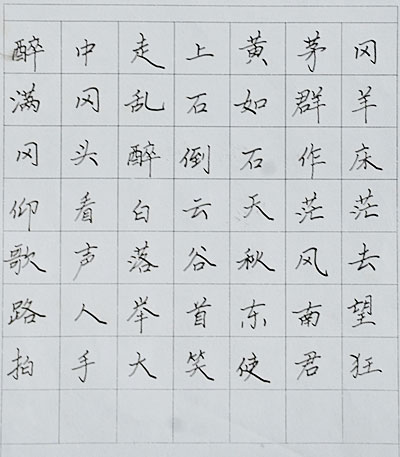 醉中走上黄茅冈
满冈乱石如群羊
冈头醉倒石作床
仰看白云天茫茫
歌声落谷秋风去
路人举首东南望
拍手大笑使君狂